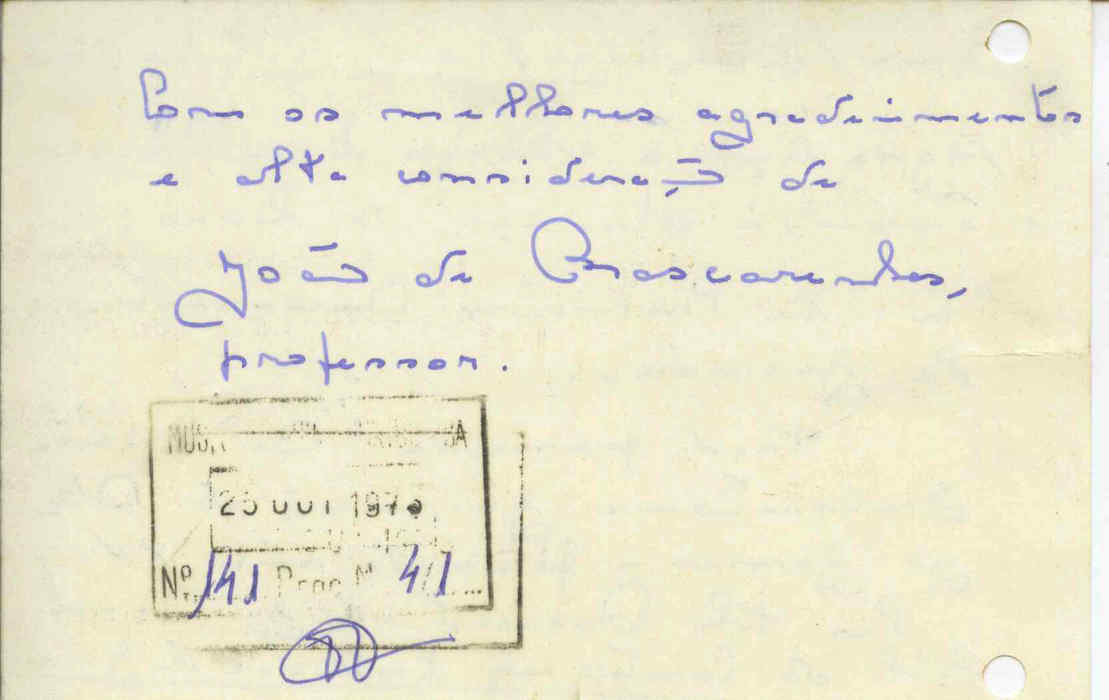 Com os melhores agradecimentos
e alta consideração de
João de Mascarenhas,
professor.
OUT 197
Nº 141 Proc Nº 4/1